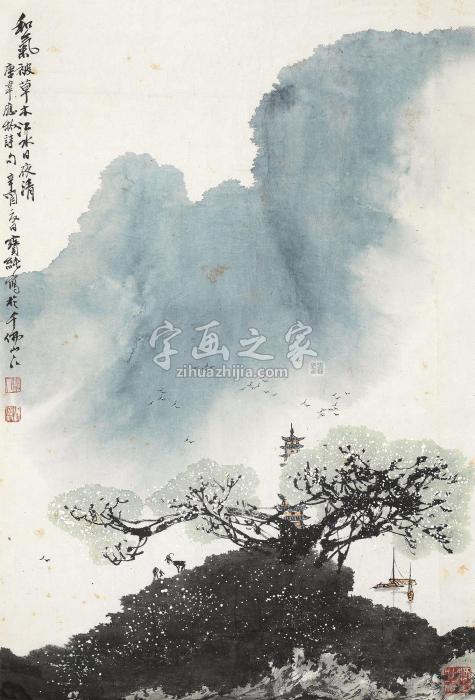 和氣被草木江水日夜清
唐韋應物詩句 辛酉夏日寶寫於千佛山下
字画之家
www.zihuazhijia.com